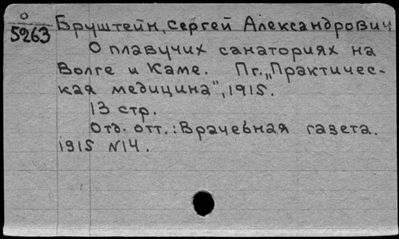 О
5263
Бруштейн, Сергей Александрович
О плавучих санаториях на
Волге и Каме. Пг., „Практичес-
кая медицина", 1915.
13 стр.
Отд. отт.: Врачебная газета.
1915 №14.